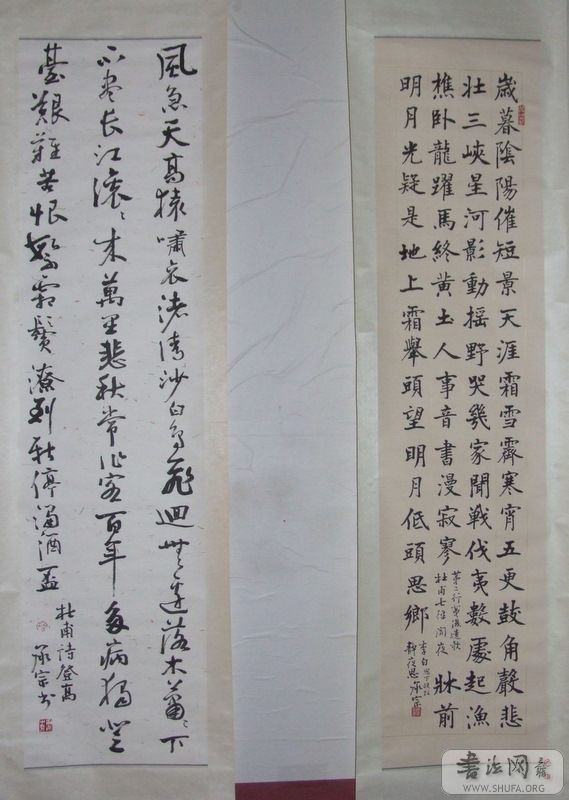 歲暮陰陽催短景天涯霜雪霽寒宵五更鼓角聲悲
壯三峽星河影動搖野哭幾家聞戰伐夷數處起漁
樵卧龍躍馬終黃土人事音書漫寂寥
第二行夷後遺歌
杜甫七律閣夜
牀前
明月光疑是地上霜舉頭望明月低頭思鄉
李白
靜夜思承宗
風急天高猿嘯哀渚清沙白鳥飛迴無邊落木蕭〻下
不盡長江滾〻來萬里悲秋常作客百年多病獨登
臺艱難苦恨繁霜鬢潦倒新停濁酒盃
杜甫詩登高
承宗书
书法网
WWW.SHUFA.ORG